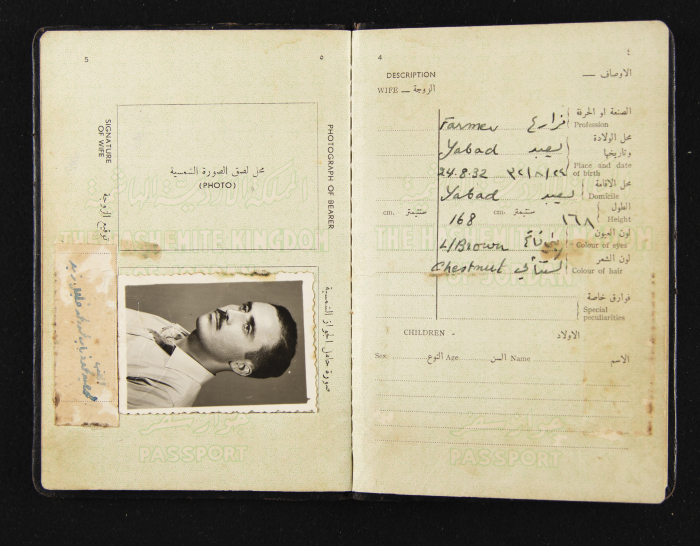 5
٥
SIGNATURE
OF WIFE
توقيع الزوجة
محل لصق الصورة الشمسية
(PHOTO)
PHOTOGRAPH OF BEARER
صورة حامل الجواز الشمسية
THE HASHEMITE KINGDOM
جواز سفر
PASSPORT
4
٤
DESCRIPTION
الاوصاف —
WIFE — الزوجة
الصنعة او الحرفة
Profession
Farmer
محل الولادة
وتاريخها
Yabad يعبد
Place and date
of birth
24.8.32 ٣٢/٨/٢٤
محل الاقامة
Domicile
Yabad يعبد
الطول
Height
cm. سنتيمتر cm. سنتيمتر
168 ١٦٨
لون العيون
Colour of eyes
L/Brown
لون الشعر
Colour of hair
Chestnut كستنائي
فوارق خاصة
Special
peculiarities
CHILDREN - الاولاد
Sex النوع Age السن Name الاسم
THE HASHEMITE KINGDOM
OF JORDAN
جواز سفر
PASSPORT